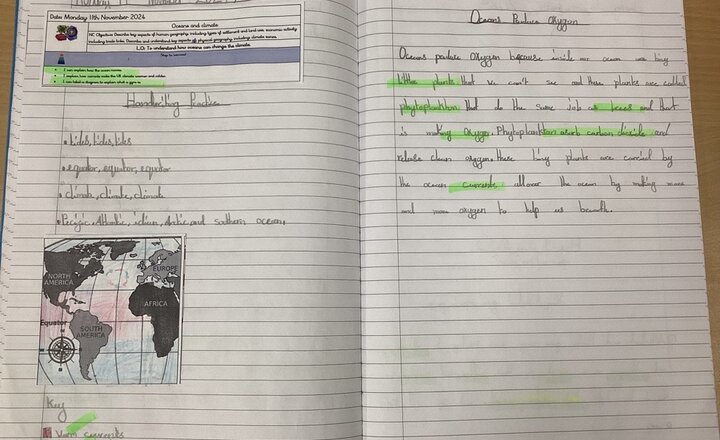 Date: Monday 11th November 2024
Oceans and climate
NC Objective: Describe key aspects of human geography, including types of settlement and land use, economic activity
including trade links. Describe and understand key aspects of physical geography, including climate zones.
L.O: To understand how oceans can change the climate.
Steps to success!
I can explain how the ocean moves.
I can explain how currents make the UK climate warmer and milder.
I can label a diagram to explain what a gyre is.
Handwriting Practise
• tides, tides, tides
• equator, equator, equator
• climate, climate, climate
• Pacific, Atlantic, indian, Arctic and southern ocean.
NORTH AMERICA
EUROPE
AFRICA
Equator
SOUTH AMERICA
Key
Warm currents
Oceans Produce Oxygen
Oceans produce oxygen because inside our ocean are tiny
little plants that we can't see and these plants are called
phytoplankton that do the same job as trees and that
is making oxygen. Phytoplankton carbon dioxide and
release clean oxygen, these tiny plants are carried by
the ocean currents allover the ocean by making more
and more oxygen to help us breath.